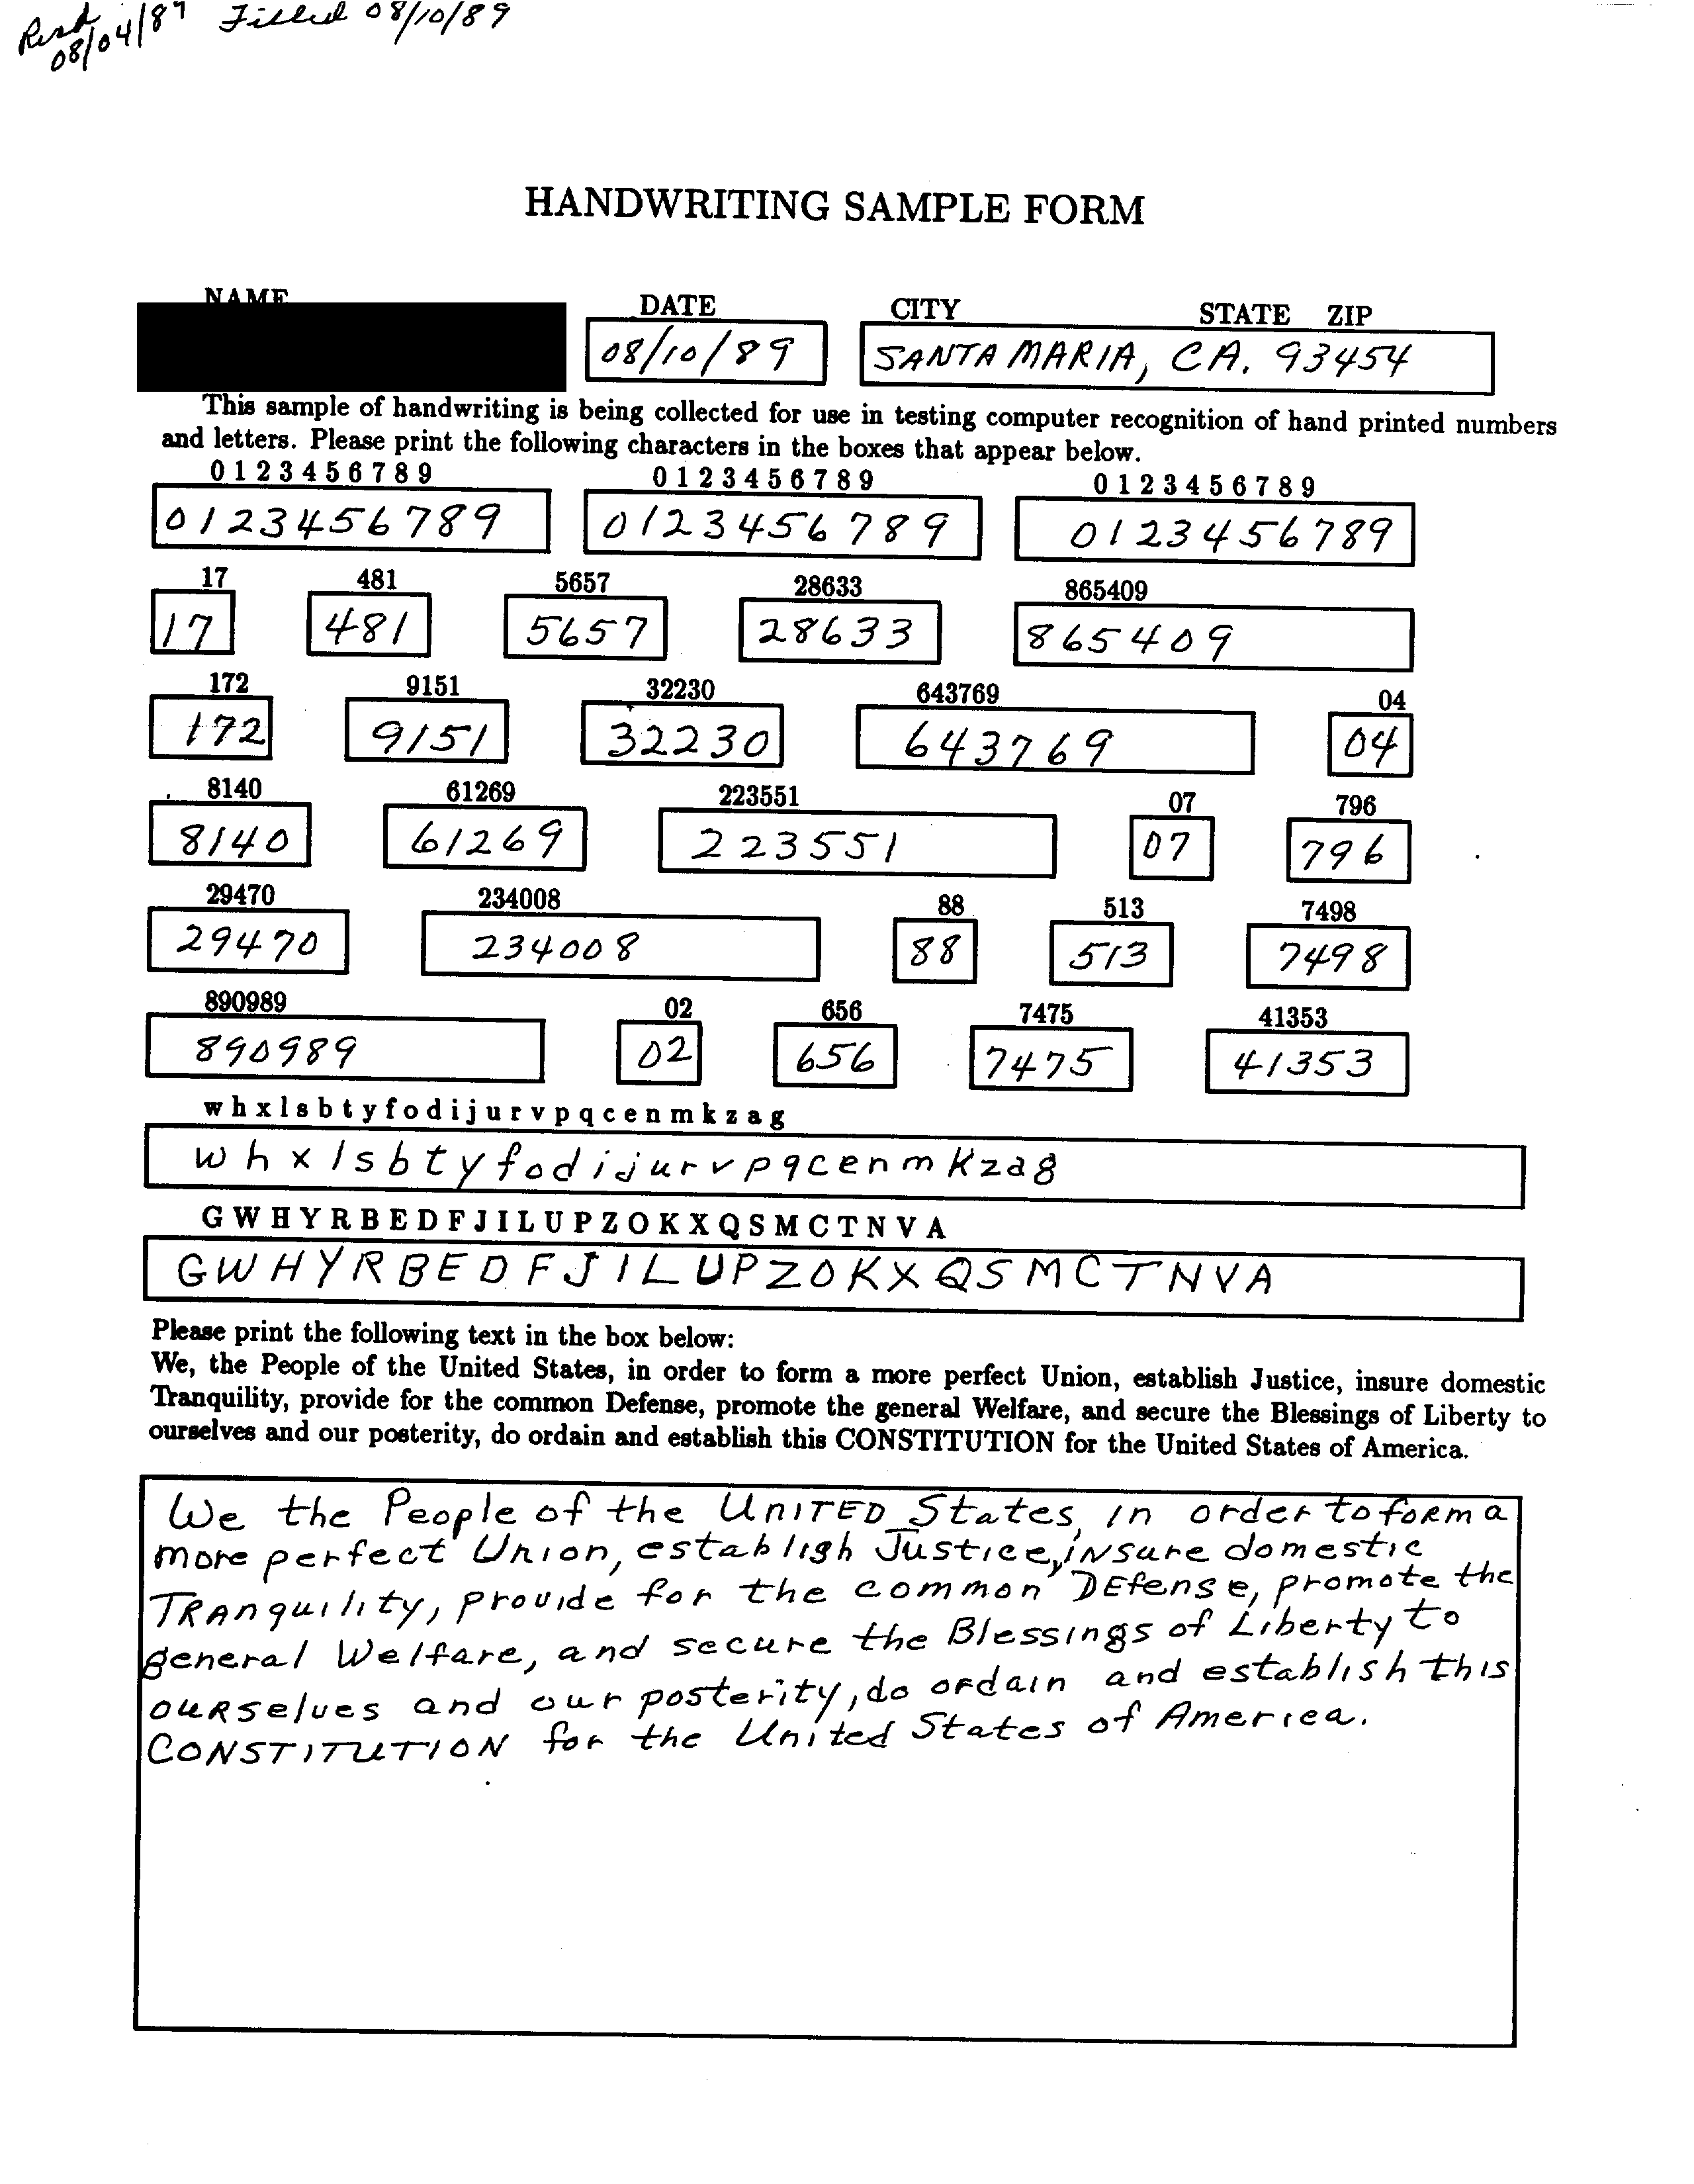 Recd 08/04/89 Filled 08/10/89
HANDWRITING SAMPLE FORM
NAME DATE CITY STATE ZIP
08/10/89 SANTA MARIA, CA. 93454
This sample of handwriting is being collected for use in testing computer recognition of hand printed numbers
and letters. Please print the following characters in the boxes that appear below.
0 1 2 3 4 5 6 7 8 9 0 1 2 3 4 5 6 7 8 9 0 1 2 3 4 5 6 7 8 9
0123456789 0123456789 0123456789
17 481 5657 28633 865409
17 481 5657 28633 865409
172 9151 32230 643769 04
172 9151 32230 643769 04
8140 61269 223551 07 796
8140 61269 223551 07 796
29470 234008 88 513 7498
29470 234008 88 513 7498
890989 02 656 7475 41353
890989 02 656 7475 41353
w h x l s b t y f o d i j u r v p q c e n m k z a g
w h x l s b t y f o d i j u r v p q c e n m k z a g
G W H Y R B E D F J I L U P Z O K X Q S M C T N V A
G W H Y R B E D F J I L U P Z O K X Q S M C T N V A
Please print the following text in the box below:
We, the People of the United States, in order to form a more perfect Union, establish Justice, insure domestic
Tranquility, provide for the common Defense, promote the general Welfare, and secure the Blessings of Liberty to
ourselves and our posterity, do ordain and establish this CONSTITUTION for the United States of America.
We the People of the UNITED States, in order to form a
more perfect Union, establish Justice, insure domestic
TRAnquility, provide for the common DEfense, promote the
general Welfare, and secure the Blessings of Liberty to
OURselves and our posterity, do ordain and establish this
CONSTITUTION for the United States of America.